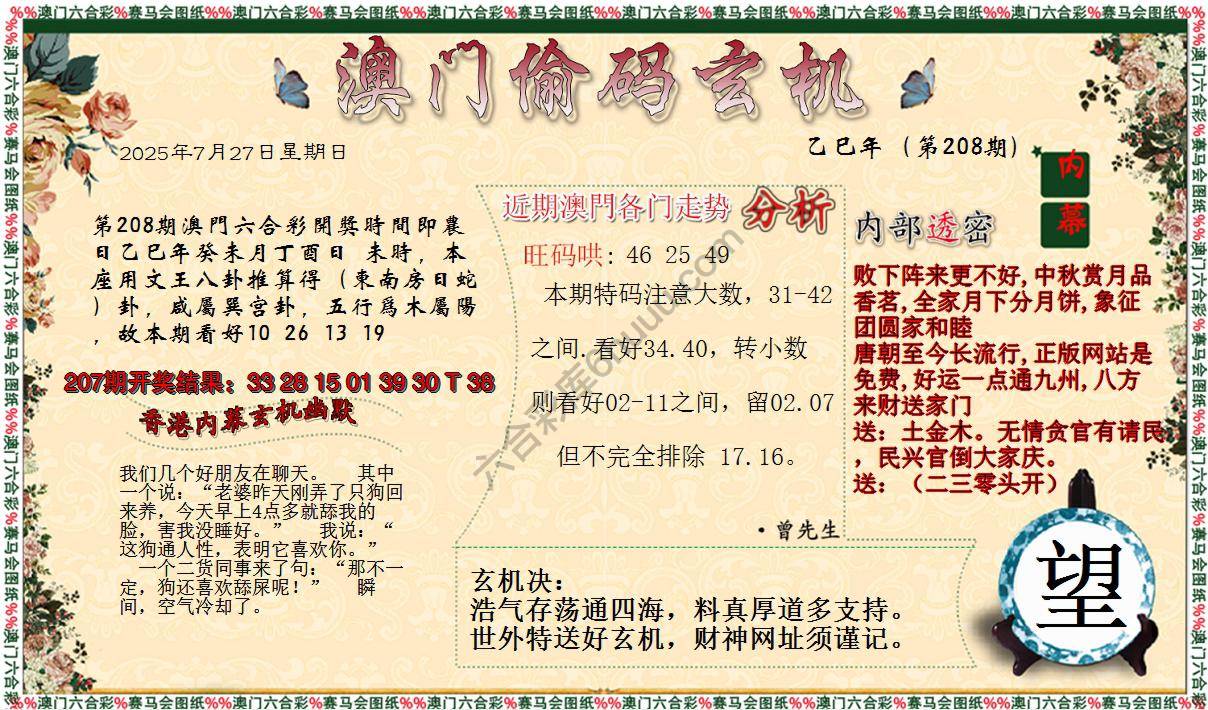 %%澳门六合彩%赛马会图纸%%澳门六合彩%赛马会图纸%%澳门六合彩%赛马会图纸%%澳门六合彩%赛马会图纸%%澳门六合彩%赛马会图纸%%澳门六合彩%赛马会图纸%%
澳门偷码玄机
2025年7月27日星期日
乙巳年（第208期）
内幕
第208期澳門六合彩開獎時間即農
日乙巳年癸未月丁酉日 未時，本
座用文王八卦推算得（東南房日蛇
）卦，咸屬巽宫卦，五行爲木屬陽
，故本期看好10 26 13 19
207期开奖结果：33 28 15 01 39 30 T 38
香港内幕玄机幽默
我们几个好朋友在聊天。 其中
一个说：“老婆昨天刚弄了只狗回
来养，今天早上4点多就舔我的
脸，害我没睡好。” 我说：“
这狗通人性，表明它喜欢你。”
一个二货同事来了句：“那不一
定，狗还喜欢舔屎呢！” 瞬
间，空气冷却了。
近期澳門各门走势 分析
旺码哄: 46 25 49
本期特码注意大数，31-42
之间.看好34.40，转小数
则看好02-11之间，留02.07
但不完全排除 17.16。
·曾先生
内部透密
败下阵来更不好,中秋赏月品
香茗,全家月下分月饼,象征
团圆家和睦
唐朝至今长流行,正版网站是
免费,好运一点通九州,八方
来财送家门
送：土金木。无情贪官有请民
，民兴官倒大家庆。
送：（二三零头开）
玄机决：
浩气存荡通四海，料真厚道多支持。
世外特送好玄机，财神网址须谨记。
望
%%澳门六合彩%赛马会图纸%%澳门六合彩%赛马会图纸%%澳门六合彩%赛马会图纸%%澳门六合彩%赛马会图纸%%澳门六合彩%赛马会图纸%%澳门六合彩%赛马会图纸%%